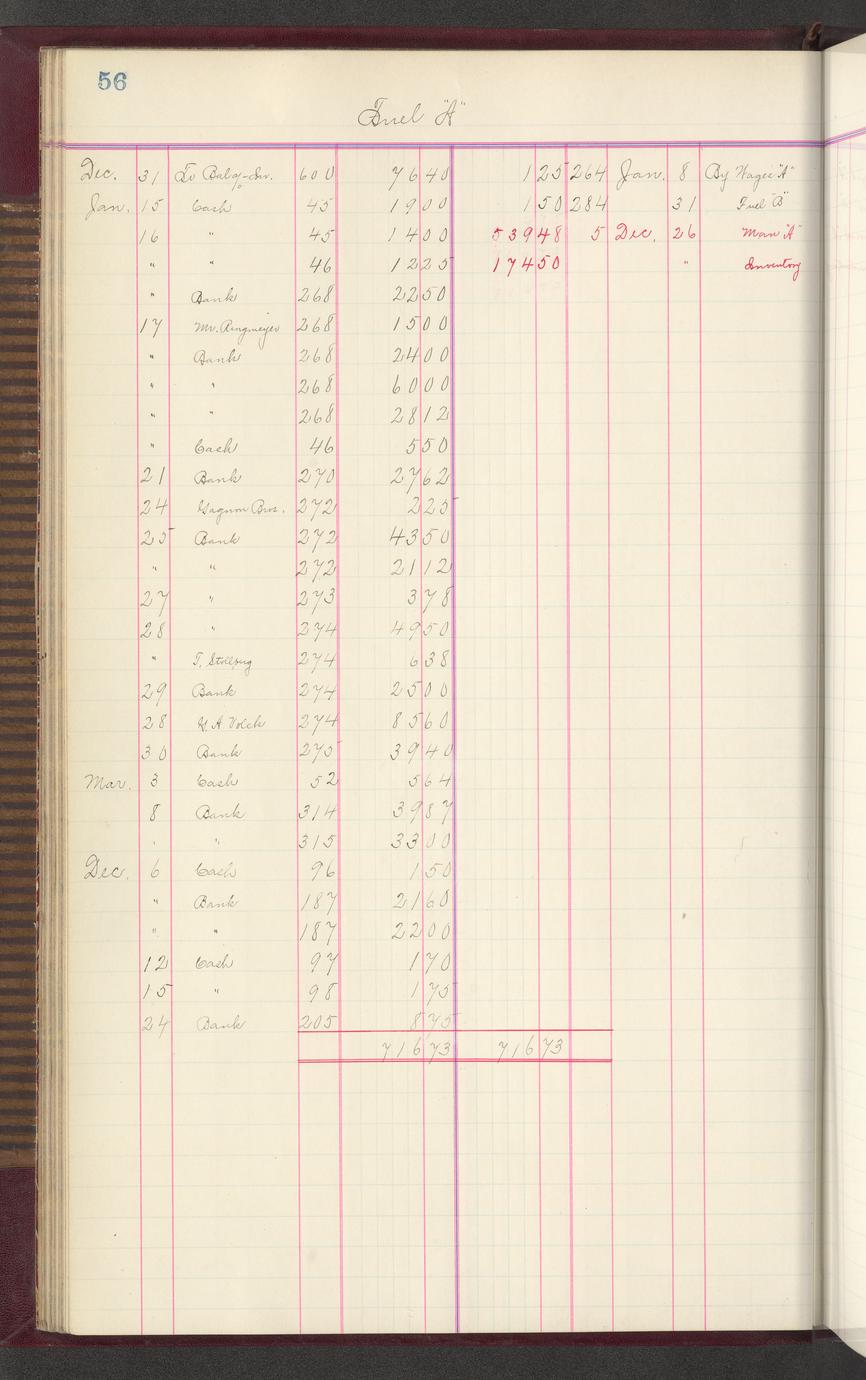 56
Fuel "A"
Dec. 31 To Bal 600 76 40 1 25 264 Jan. 8 By Wages "A"
Jan. 15 Cash 45 19 00 1 50 284 31 Fuel "B"
16 " 45 14 00 539 48 5 Dec. 26 Man "A"
" " 46 12 25 174 50 " Inventory
" Bank 268 22 50
17 Mr. Ringmeyer 268 15 00
" Bank 268 24 00
" " 268 60 00
" " 268 28 12
" Cash 46 5 50
21 Bank 270 27 62
24 Gagnon Bros. 272 2 25
25 Bank 272 43 50
" " 272 21 12
27 " 273 3 78
28 " 274 49 50
" T. Stollberg 274 6 38
29 Bank 274 25 00
28 G. A Volck 274 85 60
30 Bank 275 39 40
Mar. 3 Cash 52 5 64
8 Bank 314 39 87
" " 315 33 00
Dec. 6 Cash 96 1 50
" Bank 187 21 60
" " 187 22 00
12 Cash 97 1 70
15 " 98 1 75
24 Bank 205 8 75
716 73 716 73